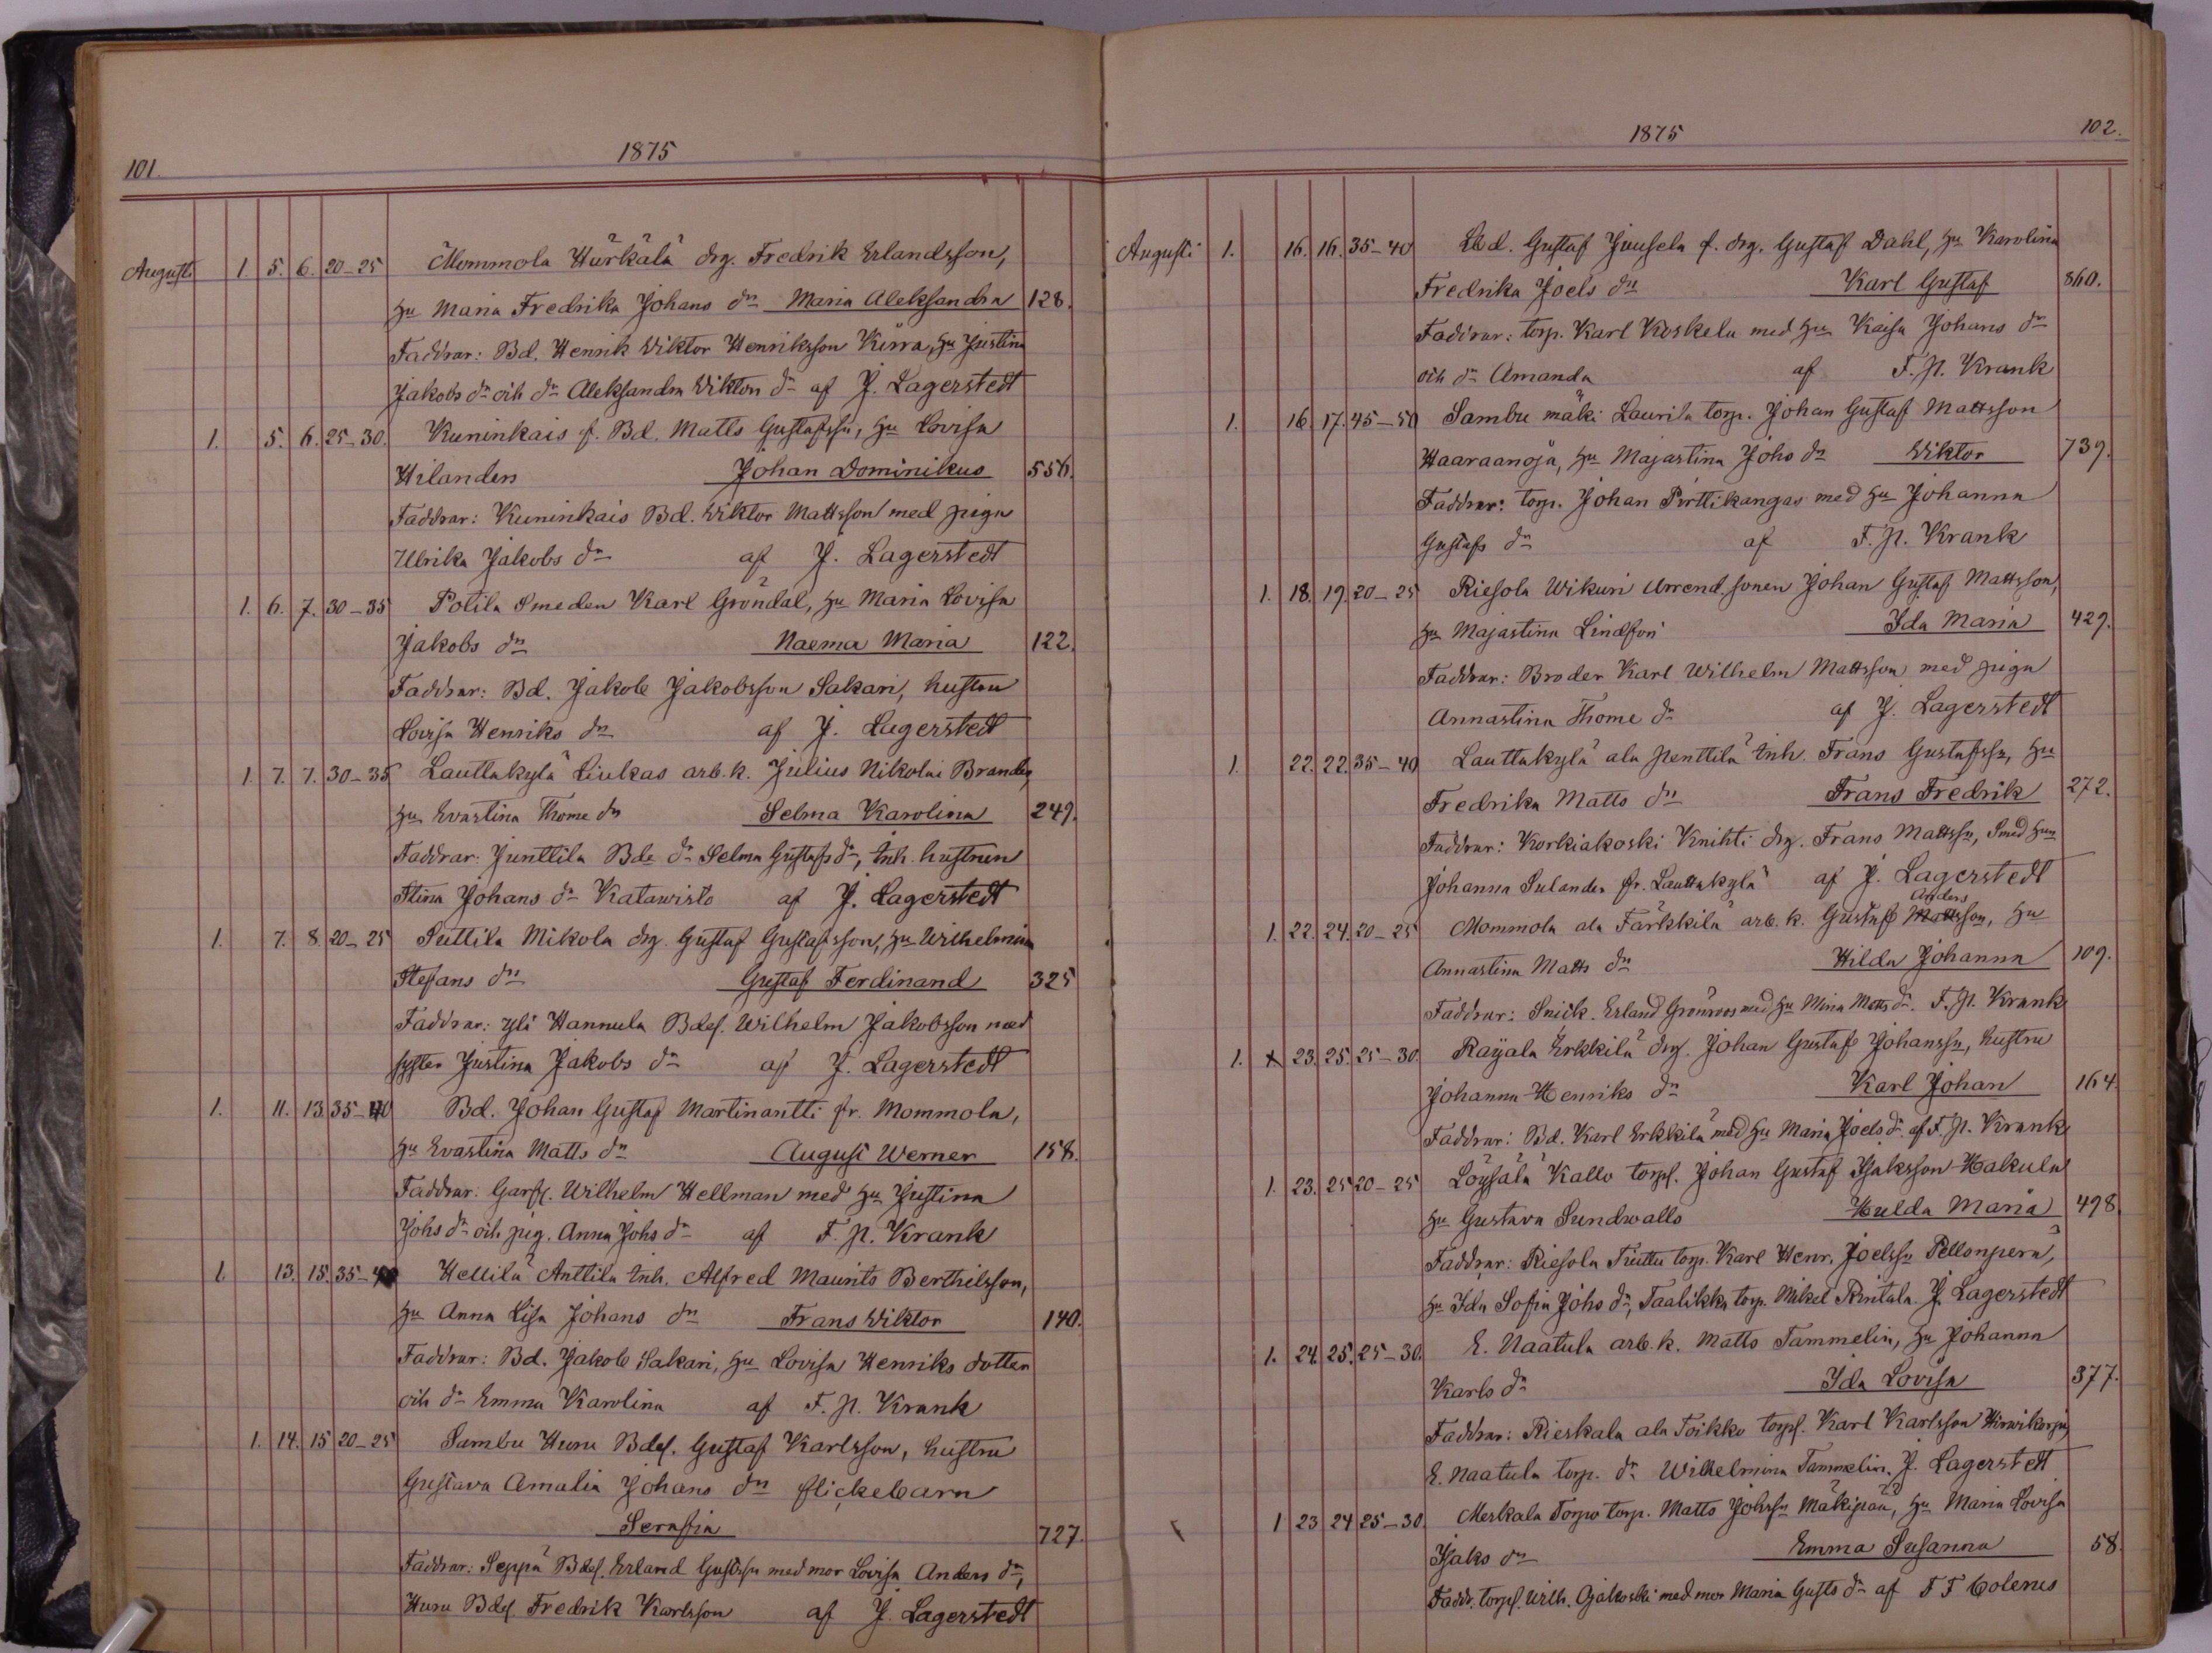 101.
1875
Augusti 1. 5. 6. 20-25 Mommola Hürkälä drg. Fredrik Erlandsson,
hu Maria Fredrika Johans dr Maria Aleksandra 128.
Faddrar: Bd. Henrik Wiktor Henriksson Kürra, hu Justina
Jakobs dr och dr Aleksandra Wiktors dr af J. Lagerstedt
1. 5. 6. 25-30. Kuninkais f. Bd. Matts Gustafssn, hu Lovisa
Hilanders Johan Dominikus 556.
Faddrar: Kuninkais Bd. Wiktor Mattsson med piga
Ulrika Jakobs dr af J. Lagerstedt
1. 6. 7. 30-35 Potila Smeden Karl Gröndal, hu Maria Lovisa
Jakobs dr Naema Maria 122.
Faddrar: Bd. Jakob Jakobsson Sakari, hustru
Lovisa Henriks dr af J. Lagerstedt
1. 7. 7. 30-35 Lauttakylä Liukas arb. k. Julius Nikolai Brander,
hu Evastina Thome dr Selma Karolina 249.
Faddrar: Junttila Bde dr Selma Gustafs dr, inh. hustrun
Stina Johans dr Katawisto af J. Lagerstedt
1. 7. 8. 20-25 Suttila Mikola drg. Gustaf Gustafsson, hu Wilhelmina
Stefans dr Gustaf Ferdinand 325
Faddrar: yli Hannula Bdes. Wilhelm Jakobsson med
syster Justina Jakobs dr af J. Lagerstedt
1. 11. 13. 35-40 Bd. Johan Gustaf Martinantti fr. Mommola,
hu Evastina Matts dr August Werner 158.
Faddrar: Garfv. Wilhelm Hellman med hu Justina
Johs dr och pig. Anna Johs dr af F. H. Krank
1. 13. 15. 35-40 Hellilä Anttila inh. Alfred Maurits Berthilsson,
hu Anna Lisa Johans dr Frans Wiktor 140.
Faddrar: Bd. Jakob Sakari, hu Lovisa Henriks dotter
och dr Emma Karolina af F. H. Krank
1. 14. 15 20-25 Sambu Huru Bdes. Gustaf Karlsson, hustru
Gustava Amalia Johans dr flickebarn
Serafia 727.
Faddrar: Seppä Bdes. Erland Gustssn med mor Lovisa Anders dr,
Huru Bdes. Fredrik Karlsson af J. Lagerstedt
1875
102.
Augusti 1. 16. 16. 35-40 Lbd. Gustaf Juusela f. drg. Gustaf Dahl, hu Karolina
Fredrika Joels dr Karl Gustaf 860.
Faddrar: torp. Karl Koskela med hu Kaisa Johans dr
och dr Amanda af F. H. Krank
1. 16. 17. 45-50 Sambu mäki Laurila torp. Johan Gustaf Mattsson
Haaraanoja, hu Majastina Johs dr Wiktor 739.
Faddrar: torp. Johan Pirttikangas med hu Johanna
Gustafs dr af F. H. Krank
1. 18. 19. 20-25 Riesola Wikuri Arrend. sonen Johan Gustaf Mattsson,
hu Majastina Lindfors Ida Maria 429.
Faddrar: Broder Karl Wilhelm Mattsson med piga
Annastina Thome dr af J. Lagerstedt
1. 22. 22. 35-40 Lauttakylä ala Penttilä inh. Frans Gustafssn, hu
Fredrika Matts dr Frans Fredrik 272.
Faddrar: Korkiakoski Knihti drg. Frans Mattssn, Smed hun
Johanna Sulander fr. Lauttakylä af J. Lagerstedt
Anders
1. 22. 24. 20-25 Mommola ala Farkkila arb. k. Gustaf Mattsson, hu
Annastina Matts dr Hilda Johanna 109.
Faddrar: Snick. Erland Grönroos med hu Mina Matts dr. F. H. Krank
1. x 23. 25. 25-30. Rajala Erkkilä drg. Johan Gustaf Johanssn, hustru
Johanna Henriks dr Karl Johan 164.
Faddrar: Bd. Karl Erkkilä med hu Maria Joels dr. af F. H. Krank
1. 23. 25 20-25 Löysälä Kallo torps. Johan Gustaf Isaksson Hakula
hu Gustava Sundwalls Hulda Maria 498
Faddrar: Riesola Tuittu torp. Karl Henr. Joelssn Pellonperä,
hu Ida Sofia Johs dr, Taalikka torp. Mikel Rintala. J. Lagerstedt
1. 24. 25. 25-30. E. Naatula arb. k. Matts Tammelin, hu Johanna
Karls dr Ida Lovisa 377.
Faddrar: Rieskala ala Toikko torps. Karl Karlsson Hirwikorpi,
E. Naatula torp. dr Wilhelmina Tammelin. J. Lagerstedt
1 23 24 25-30. Meskala Torpo torp. Matts Johssn Mäkipää, hu Maria Lovisa
Isaks dr Emma Susanna 58.
Faddr. torps. Wilh. Ojakoski med mor Maria Gusts dr af F F Colerus